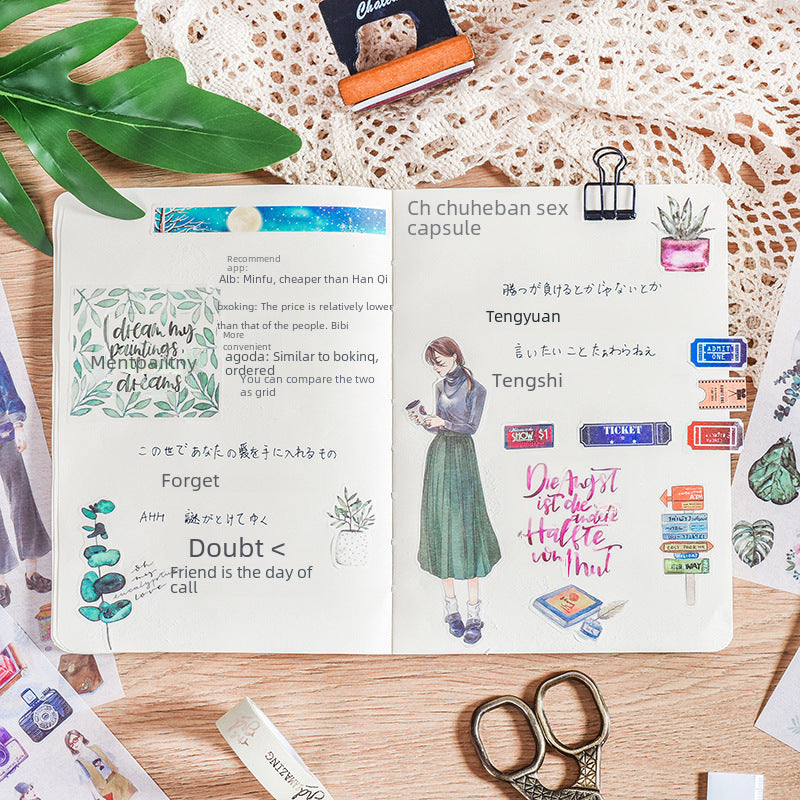 Recommend
app:
Alb: Minfu, cheaper than Han Qi
bxoking: The price is relatively lower
than that of the people. Bibi
More
convenient
agoda: Similar to bokinq,
ordered
You can compare the two
as grid
I dream my
paintings,
Mentpaitny
dreams
この世であなたの愛を手に入れるもの
Forget
AHH 謎がとけてゆく
Doubt <
Friend is the day of
call
oh
my
eucalyptus
love
Ch chuheban sex
capsule
勝つか負けるとかじゃないとか
Tengyuan
言いたいことたぁわらねぇ
Tengshi
ADMIT
ONE
SHOW $1
TICKET
Die Angst
ist die
andere
Hälfte
vom Mut
HOLIDAY
AMAZING